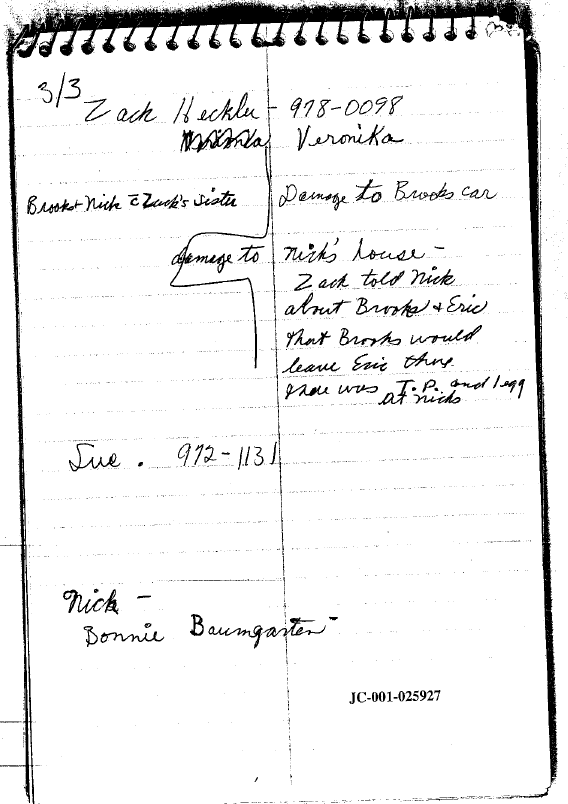 3/3
Zack Heckler - 978-0098
Veronika
Brooks + Nick c̄ Zack's sister
Damage to Brooks car
damage to Nick's house -
Zack told Nick
about Brooks + Eric
that Brooks would
leave Eric there
there was T.P. and 1 egg
at nicks
Sue . 972-1131
Nick -
Bonnie Baumgarten -
JC-001-025927